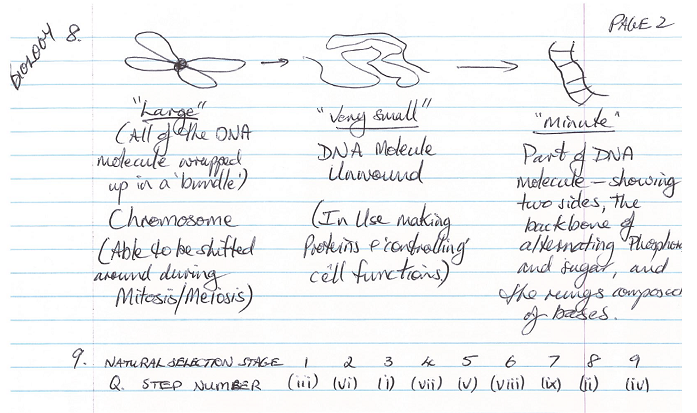 PAGE 2
BIOLOGY 8.
"Large"
(All of the DNA
molecule wrapped
up in a 'bundle')
Chromosome
(Able to be shifted
around during
Mitosis/Meiosis)
"Very small"
DNA Molecule
Unwound
(In Use making
Proteins & 'controlling'
cell functions)
"Minute"
Part of DNA
molecule – showing
two sides, the
backbone of
alternating Phosphate
and sugar, and
the rungs composed
of bases.
9. NATURAL SELECTION STAGE 1 2 3 4 5 6 7 8 9
Q. STEP NUMBER (iii) (vi) (i) (vii) (v) (viii) (ix) (ii) (iv)